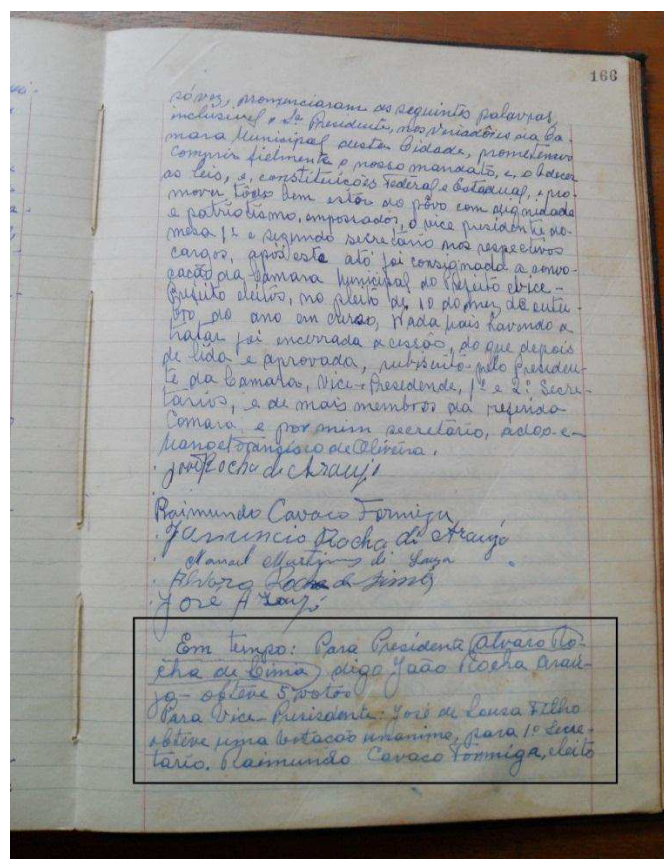 166
só vez, pronunciaram as seguintes palavras,
inclusivel o Sr. Presidente, nos Veriadores da Ca-
mara Municipal desta Cidade, prometemos
comprir fielmente o nosso mandato, e, obdecer
as leis, e, constituições Federal e Estadual, e pro-
mover todo bem estar do pôvo com dignidade
e patriotismo, empossados, o vice presidente da
mesa 1º e segundo secretário nos respectivos
cargos, após este ato foi consignada a convo-
cação da Camara Municipal do Prefeito e vice-
Prefeito eleitos, no pleito de 10 do mez de outu-
bro, do ano em curso, Nada mais havendo a
tratar foi encerrada a cessão, do que depois
de lida e aprovada, subiscrito pelo Presiden-
te da Camara, Vice-Presedende, 1º e 2º Secre-
tários, e de mais membros da referida
Camara e por mim secretário,
Manoel Francisco de Oliveira.
João Rocha de Araujo
Raimundo Cavaco Formiga
Januncio Rocha di Araujo
Manoel Martins di Souza
Alvaro Rocha de Lima
José A
Em tempo: Para Presidente (Alvaro Ro-
cha de Lima) digo João Rocha Arau-
jo - obteve 5 votos
Para Vice-Presisdente: José de Souza Filho
obteve uma votacão unanime, para 1º Secre-
tário. Raimundo Cavaco Formiga, eleito